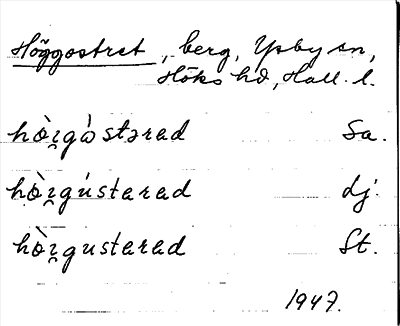 Höggostret, berg, Ysby sn,
Höks hd, Hall. l.
hö̀i̯gò̀stərad Sa.
hö̀i̯gústarad Lj.
hö̀i̯gustarad St.
1947.